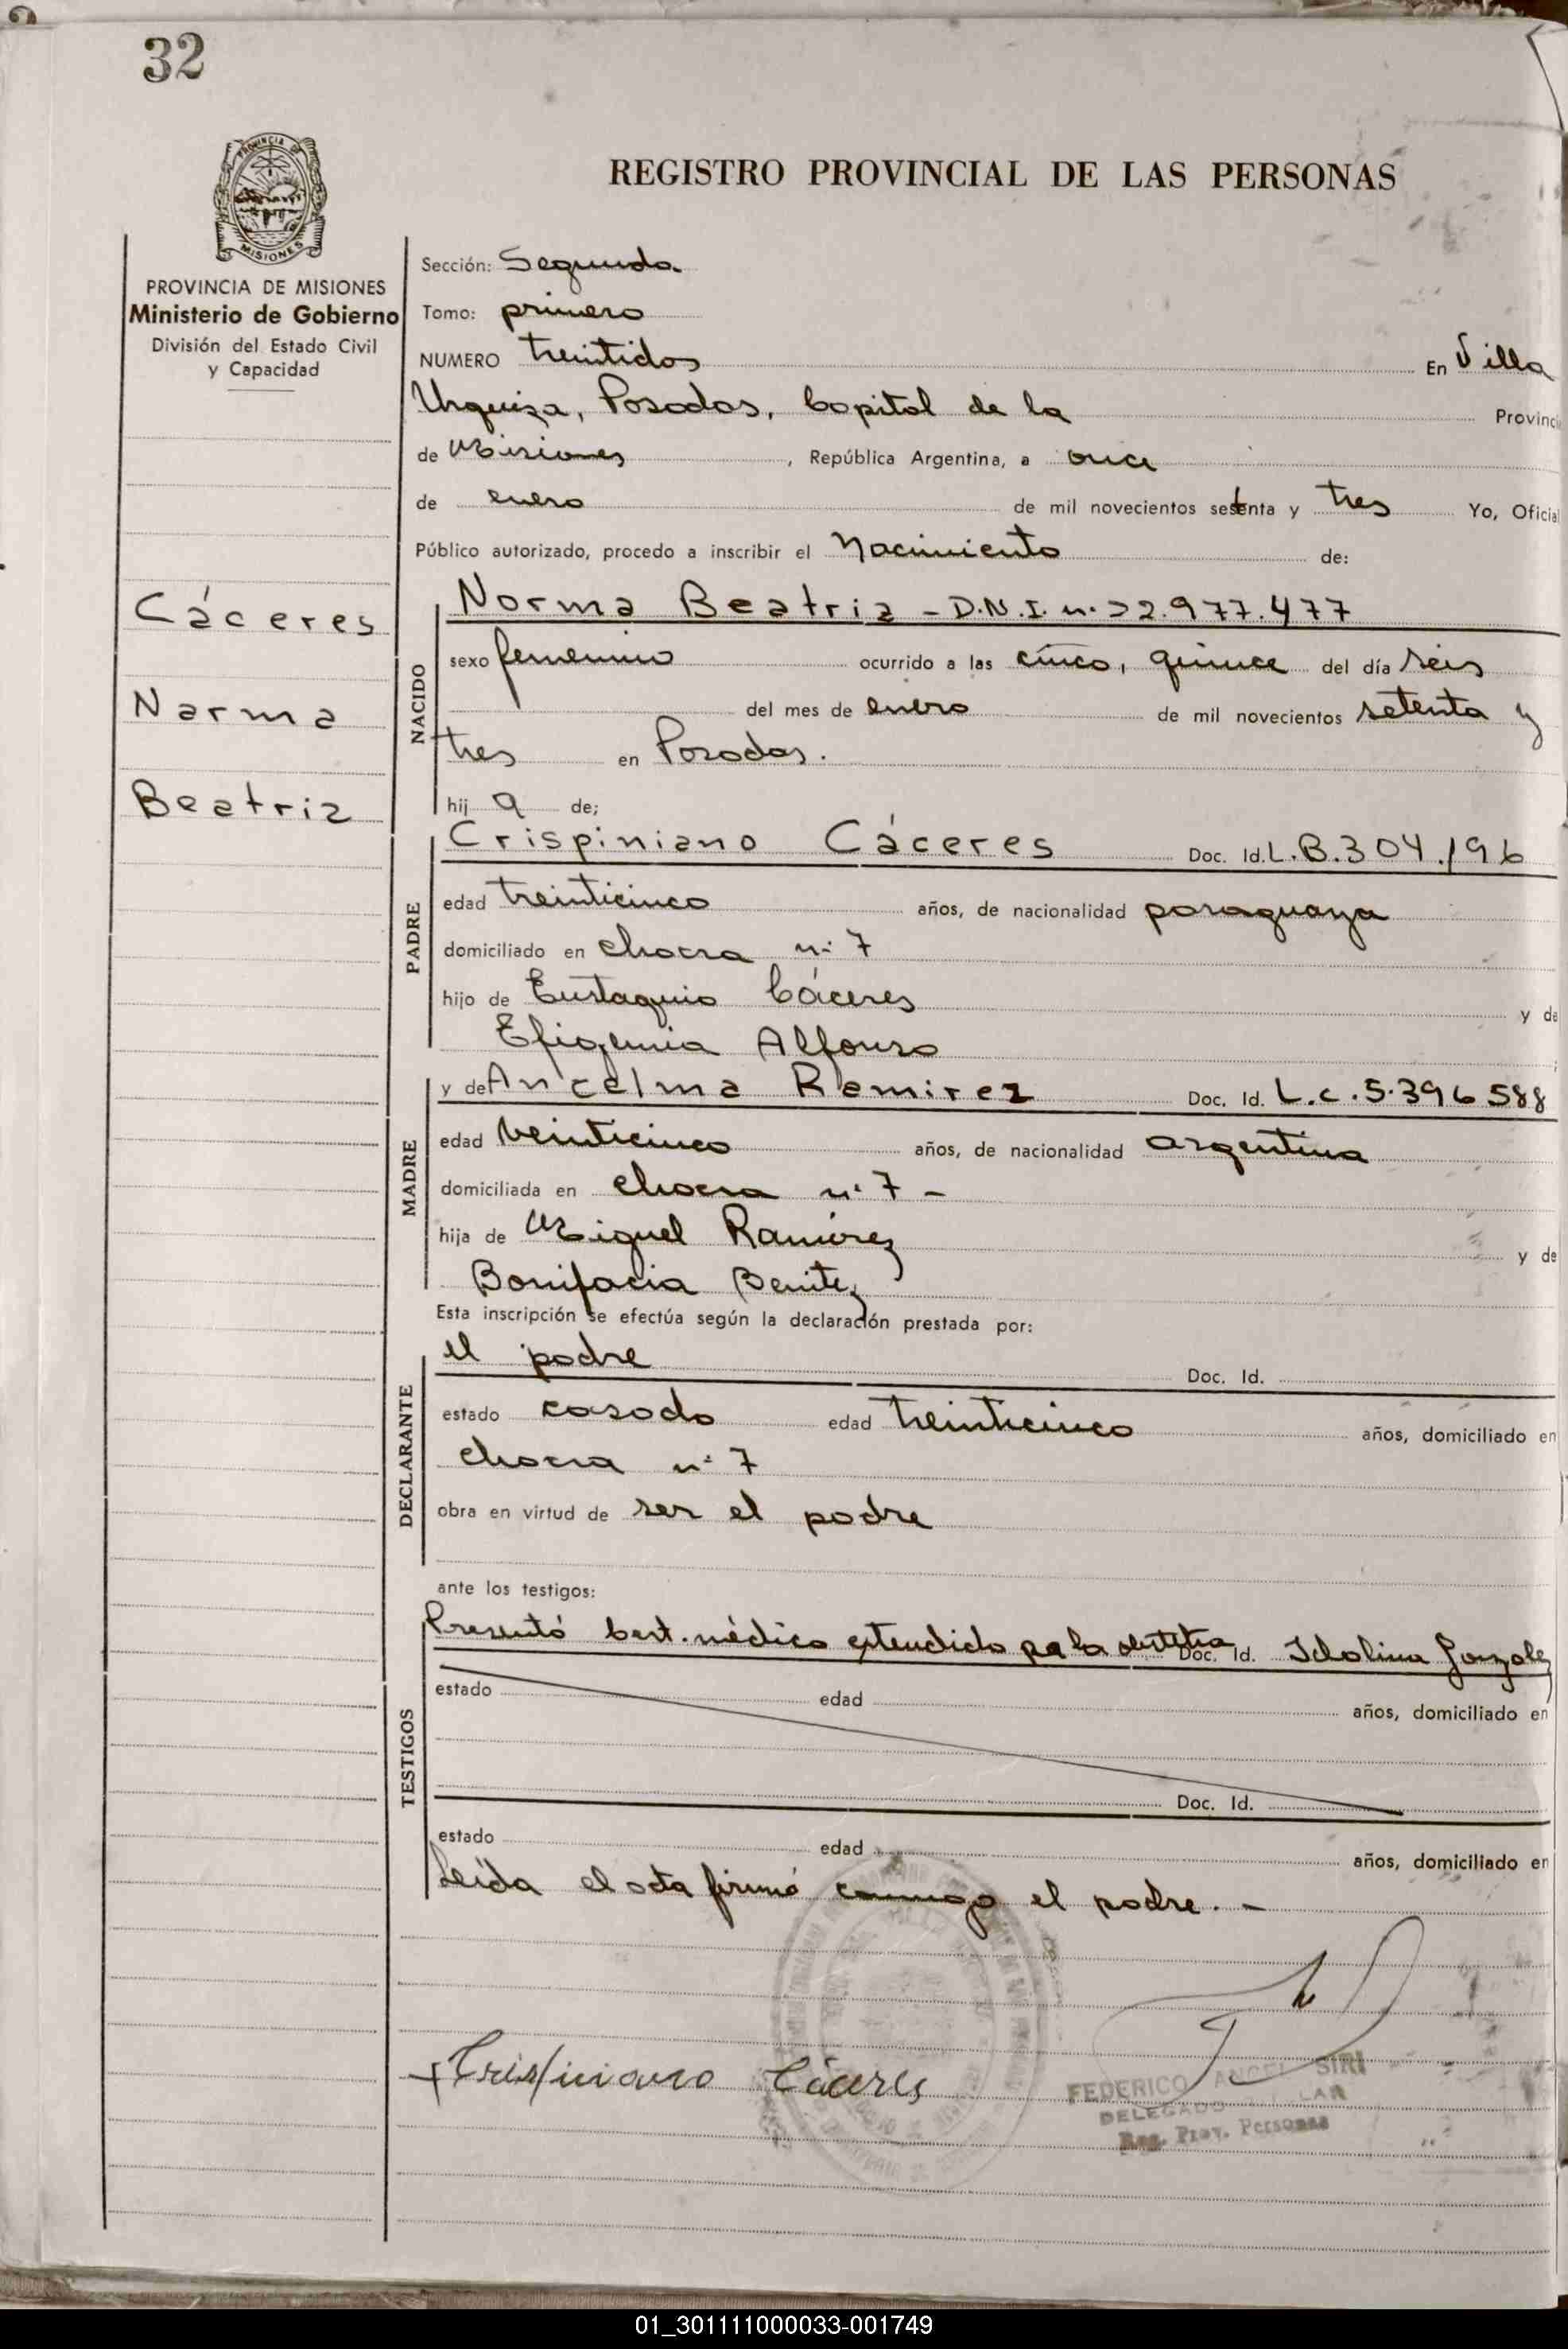 32
PROVINCIA DE
MISIONES
REGISTRO PROVINCIAL DE LAS PERSONAS
PROVINCIA DE MISIONES
Ministerio de Gobierno
División del Estado Civil
y Capacidad
Cáceres
Norma
Beatriz
Sección: Segunda
Tomo: primero
NUMERO treintidos En Villa
Urquiza, Posadas, Capital de la Provinci
de Misiones, República Argentina, a once
de enero de mil novecientos setenta y tres Yo, Oficial
Público autorizado, procedo a inscribir el Nacimiento de:
NACIDO
Norma Beatriz - D.N.I. n. 22.977.477
sexo femenino ocurrido a las cinco, quince del día seis
del mes de enero de mil novecientos setenta y
tres en Posadas.
hij a de;
PADRE
Crispiniano Cáceres Doc. Id. L.B.304.196
edad treinticinco años, de nacionalidad paraguaya
domiciliado en chacra n: 7
hijo de Eustaquio Cáceres y de
Efigenia Alfonso
MADRE
y de Ancelma Remirez Doc. Id. L.C.5.396588
edad veinticinco años, de nacionalidad argentina
domiciliada en chacra n: 7 -
hija de Miguel Ramirez y de
Bonifacia Benitez
Esta inscripción se efectúa según la declaración prestada por:
DECLARANTE
el padre Doc. Id.
estado casado edad treinticinco años, domiciliado en
chacra n: 7
obra en virtud de ser el padre
ante los testigos:
TESTIGOS
Presentó Cert. médico extendido pr la obstetra Doc. Id. Idolina Gonzalez
estado edad años, domiciliado en
Doc. Id.
estado edad años, domiciliado en
Leída el acta firmó conmigo el padre. -
Crispiniano Cáceres
FEDERICO ANGEL SIRI
DELEGADO
Reg. Prov. Personas
01_301111000033-001749